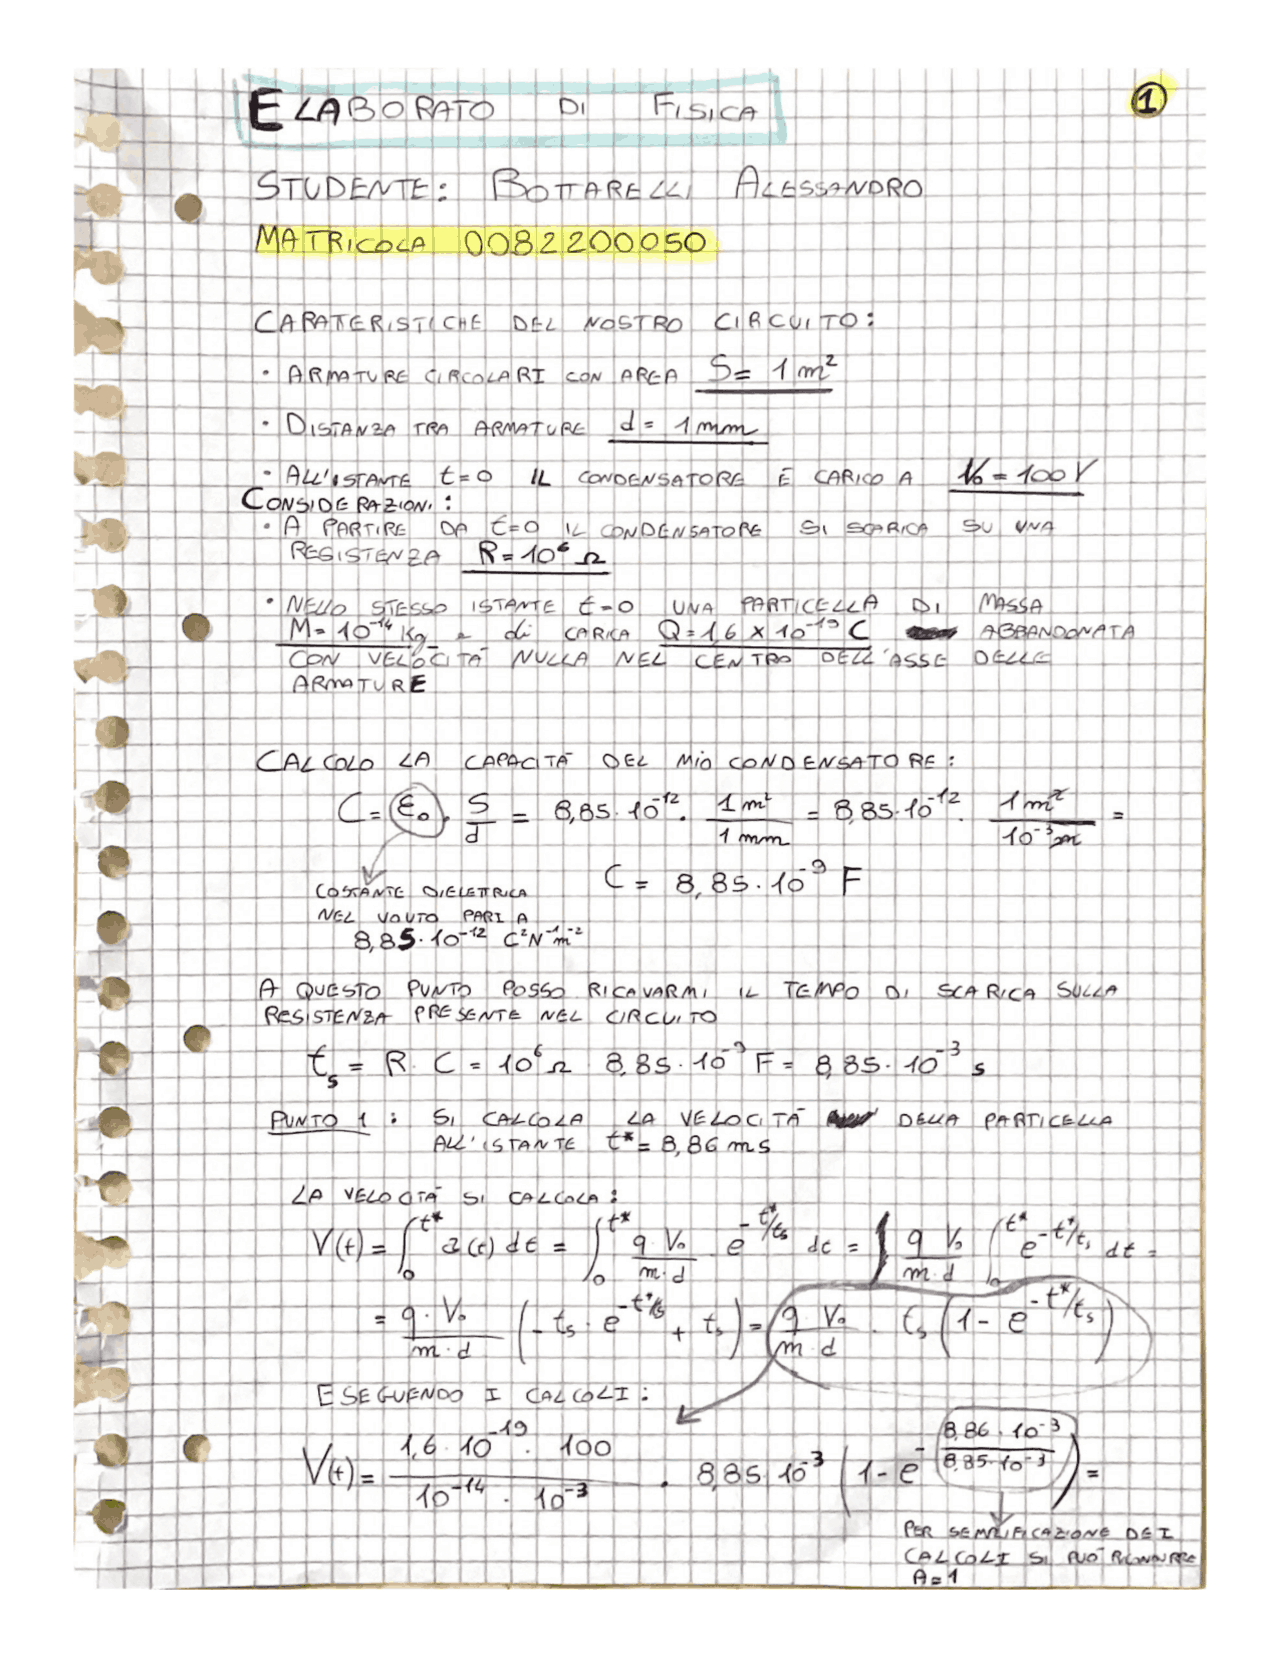 ELABORATO DI FISICA
1
STUDENTE: BOTTARELLI ALESSANDRO
MATRICOLA 0082200050
CARATTERISTICHE DEL NOSTRO CIRCUITO:
· ARMATURE CIRCOLARI CON AREA S= 1 m²
· DISTANZA TRA ARMATURE d = 1 mm
· ALL'ISTANTE t=0 IL CONDENSATORE È CARICO A V₀ = 100 V
CONSIDERAZIONI:
· A PARTIRE DA t=0 IL CONDENSATORE SI SCARICA SU UNA
RESISTENZA R = 10⁶ Ω
· NELLO STESSO ISTANTE t=0 UNA PARTICELLA DI MASSA
M= 10⁻¹⁴ Kg e di CARICA Q=1,6 × 10⁻¹⁹ C ABBANDONATA
CON VELOCITÀ NULLA NEL CENTRO DELL'ASSE DELLE
ARMATURE
CALCOLO LA CAPACITÀ DEL MIO CONDENSATORE:
C = ε₀ · S/d = 8,85 · 10⁻¹² · 1 m²/1 mm = 8,85 · 10⁻¹² · 1 m²/10⁻³ m =
C = 8,85 · 10⁻⁹ F
COSTANTE DIELETRICA
NEL VOUTO PARI A
8,85 · 10⁻¹² C²N⁻¹m⁻²
A QUESTO PUNTO POSSO RICAVARMI IL TEMPO DI SCARICA SULLA
RESISTENZA PRESENTE NEL CIRCUITO
tₛ = R · C = 10⁶ Ω 8,85 · 10⁻⁹ F = 8,85 · 10⁻³ s
PUNTO 1 : SI CALCOLA LA VELOCITÀ DELLA PARTICELLA
ALL'ISTANTE t* = 8,86 ms
LA VELOCITÀ SI CALCOLA:
V(t) = ∫₀^t* a(t) dt = ∫₀^t* q·V₀/m·d · e^-t*/tₛ dt = q V₀/m·d ∫₀^t* e^-t*/tₛ dt =
= q·V₀/m·d (-tₛ · e^-t*/tₛ + tₛ) = q V₀/m·d · tₛ (1 - e^-t*/tₛ)
ESEGUENDO I CALCOLI:
V(t) = 1,6 · 10⁻¹⁹ · 100/10⁻¹⁴ · 10⁻³ · 8,85 · 10⁻³ (1 - e^-8,86 · 10⁻³/8,85 · 10⁻³) =
PER SEMPLIFICAZIONE DEI
CALCOLI SI PUÒ RICONDURRE
A = 1